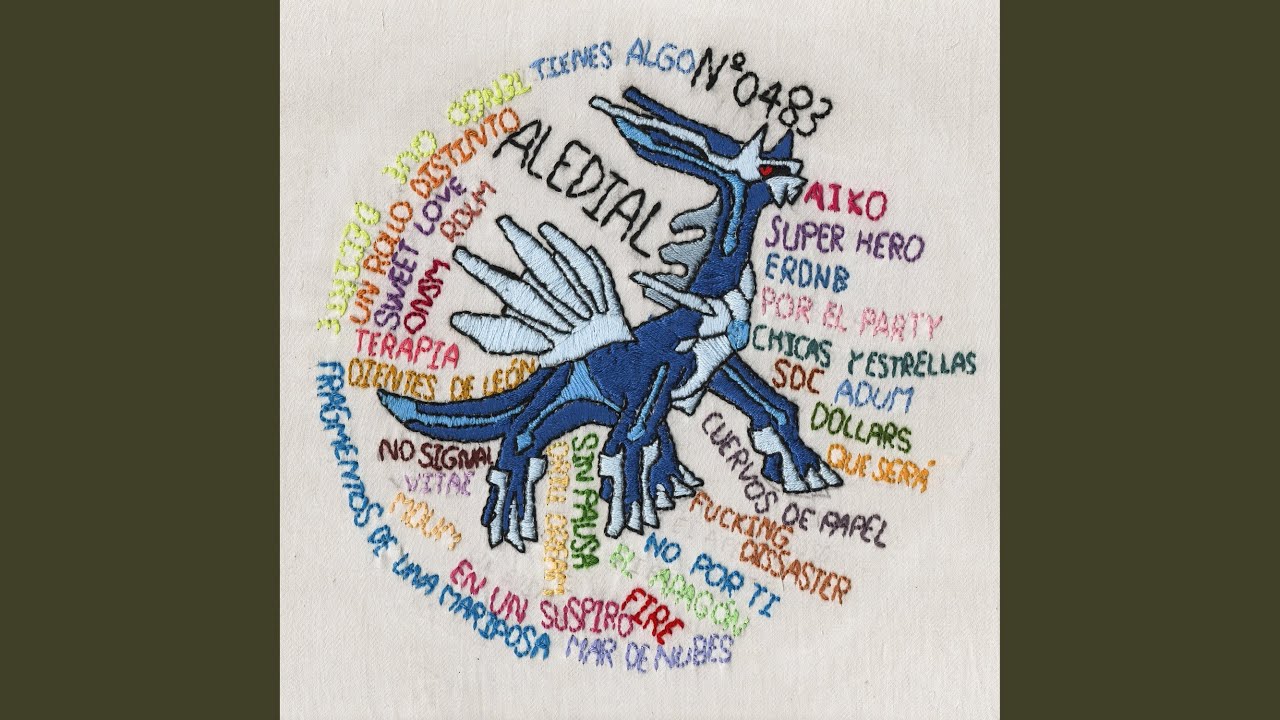 TIENES ALGO
Nº0483
ALEDIAL
UN ROLLO DISTINTO
SWEET LOVE
RDUM
ONSM
TERAPIA
DIENTES DE LEÓN
AIKO
SUPER HERO
ERDNB
POR EL PARTY
CHICAS Y ESTRELLAS
SDC
ADUM
DOLLARS
QUE SERÁ
CUERVOS DE PAPEL
FUCKING
DISSASTER
NO POR TI
EL ARAGÓN
FIRE
SIN PAUSA
NO SIGNAL
VITAE
MDUM
EN UN SUSPIRO
MAR DE NUBES
FRAGMENTOS DE UNA MARIPOSA